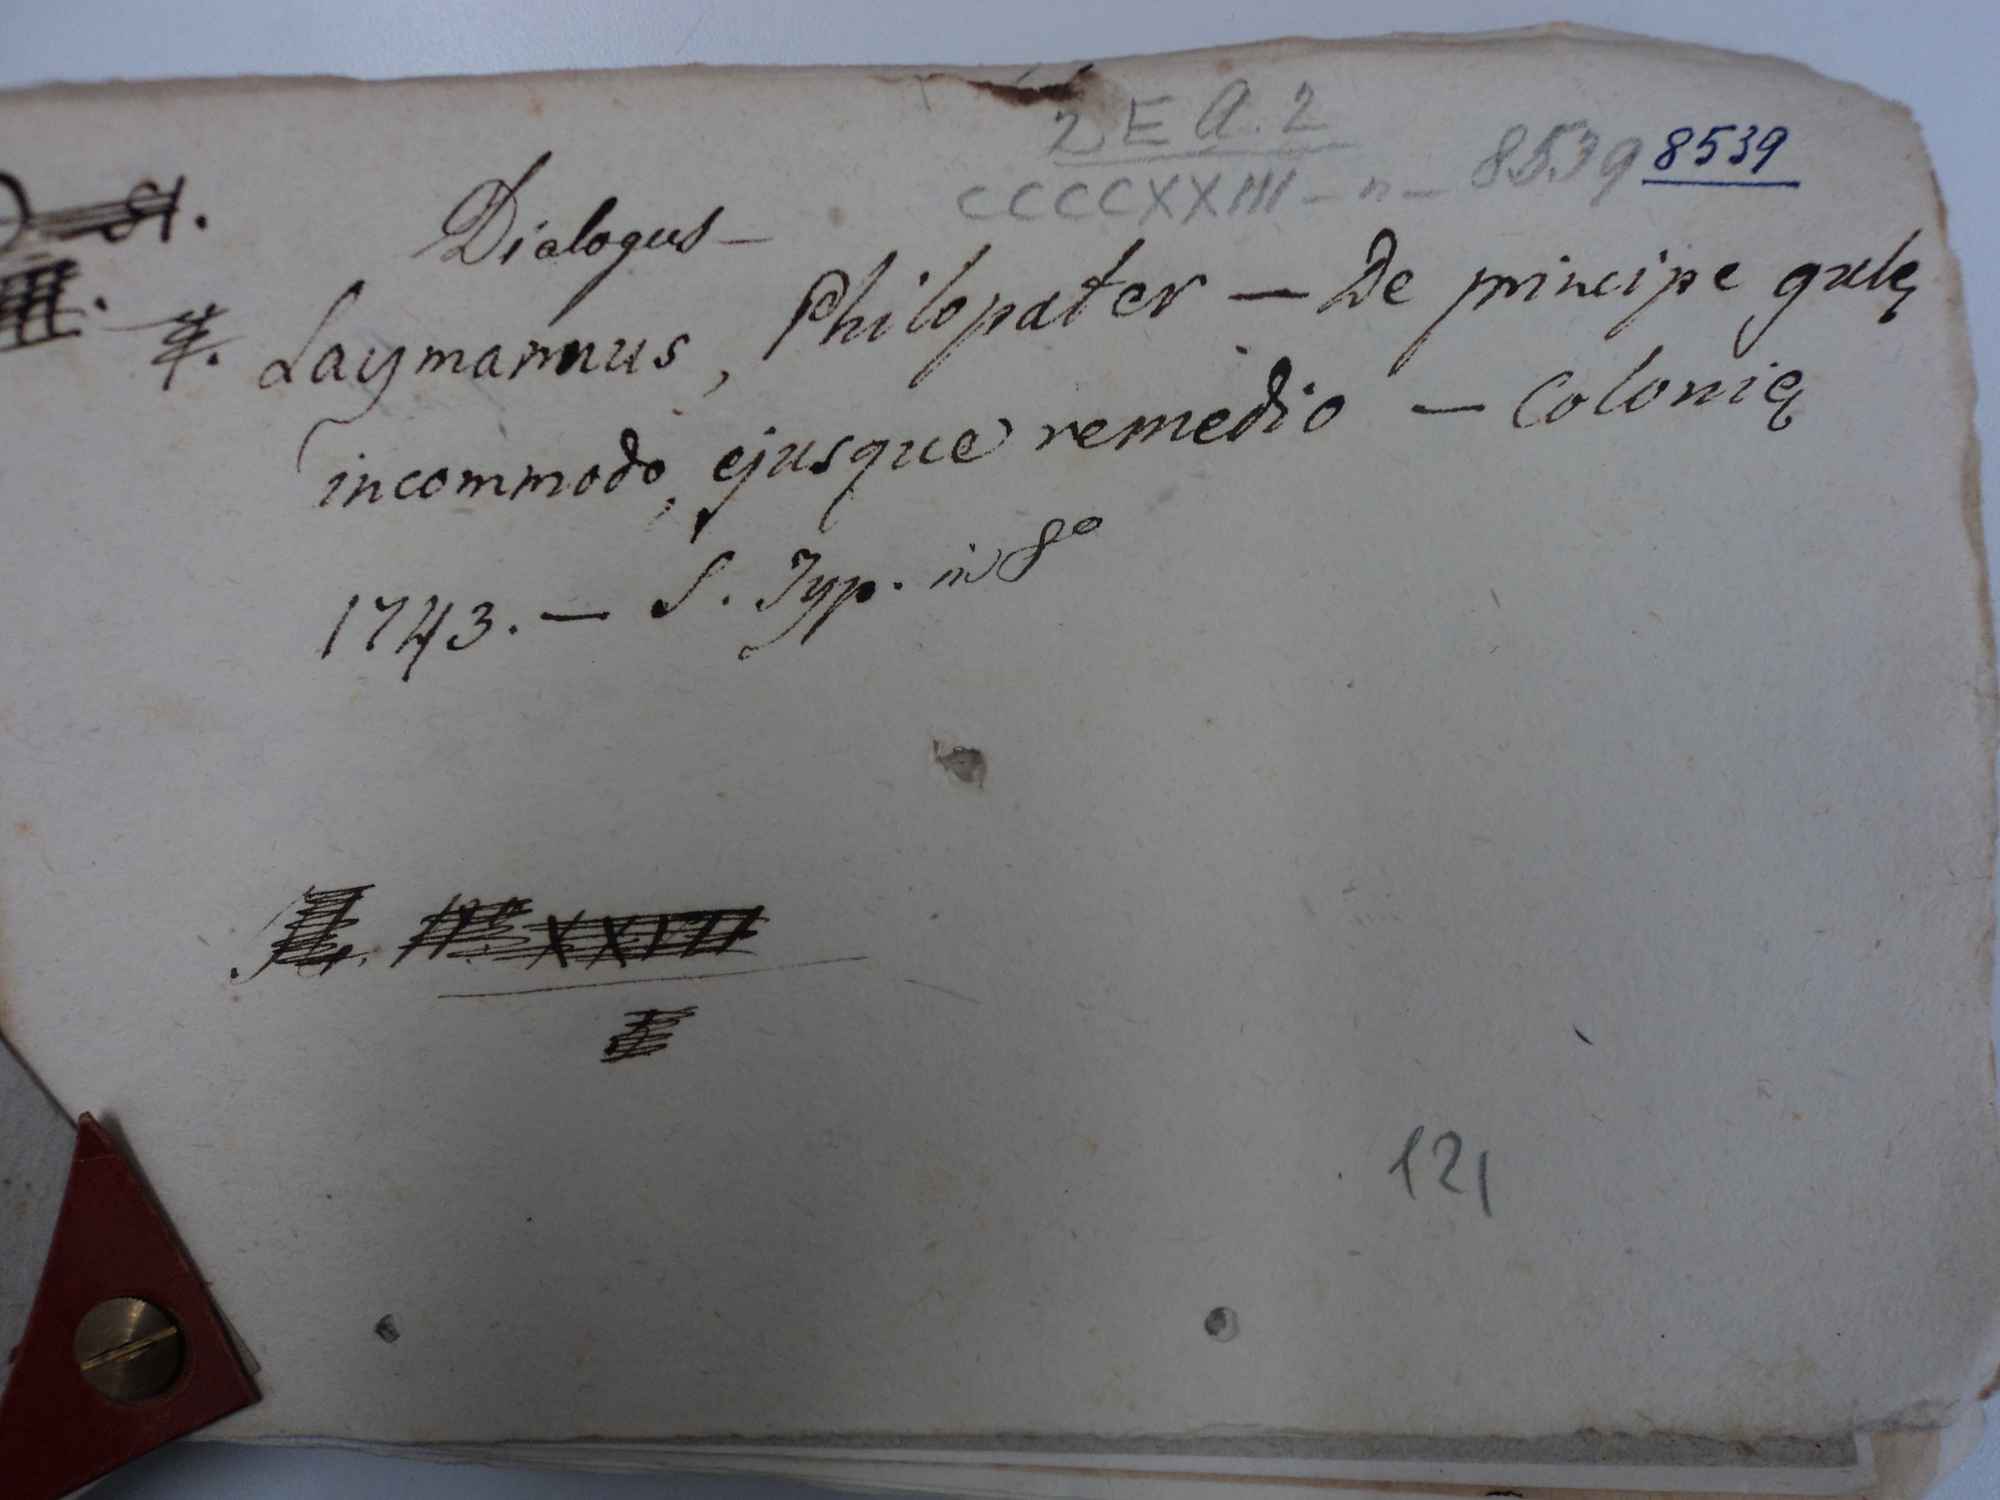 2 E A. 2
CCCCXXIII - n - 8539 8539
Dialogus —
4. Laymannus, Philopater — De principe gulę
incommodo, ejusque remedio — Colonię
1743. — S. Typ. in 8º
XXIII
121